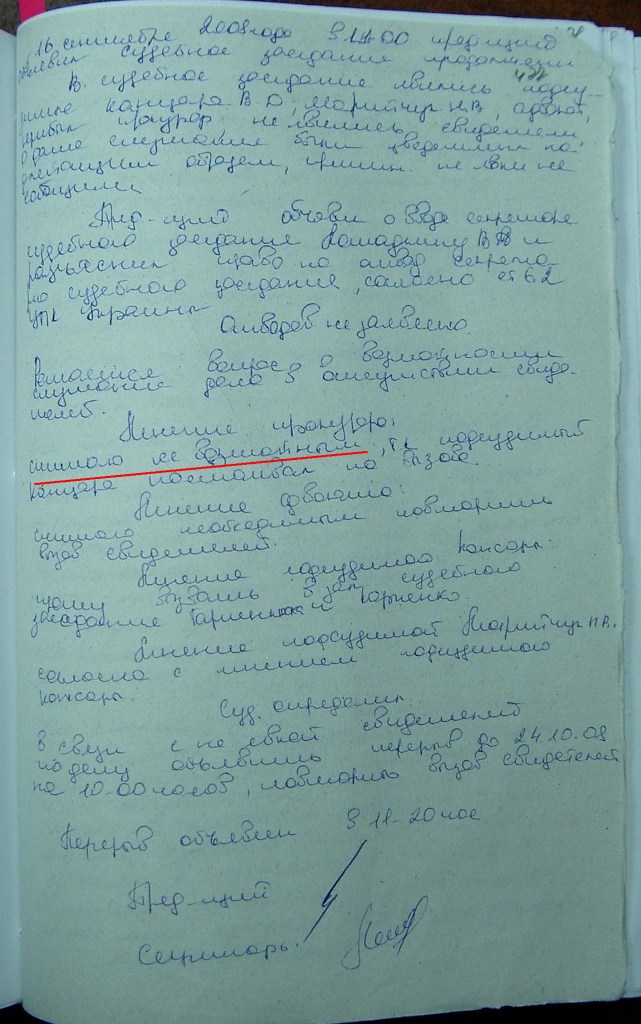 16 сентября 2008 года в 11-00 пред-щий
объявил судебное заседание продолжен
В судебное заседание явились подсу-
димые Канцара В О, Марийчук Н.В, адвокат,
прибыл прокурор не явились свидетели,
о дате слушания были уведомлены на-
длежащим образом, причин не явки не
сообщили.
Пред-щий объявил о вводе секретаря
судебного заседания Ромашкину В В и
разъяснил право на отвод секрета-
рю судебного заседания, согласно ст 62
УПК Украины
Отводов не заявлено.
Решается вопрос о возможности
слушание дела в отсутствии свиде-
телей.
Мнение прокурора:
считаю не возможным, т.к. подсудимый
Канцара настаивал на вызове.
Мнение адвоката:
считаю необходимым повторить
вызов свидетелей.
Мнение подсудимого Канцары:
прошу вызвать в зал судебного
заседание и Карпенко.
Мнение подсудимой Марийчук Н.В.
согласна с мнением подсудимого
Канцары.
Суд, определил
В связи с не явкой свидетелей
по делу объявить перерыв до 24.10.08
на 10-00 часов, повторить вызов свидетелей
Перерыв объявлен в 11-20 час
Пред-щий
Секретарь.